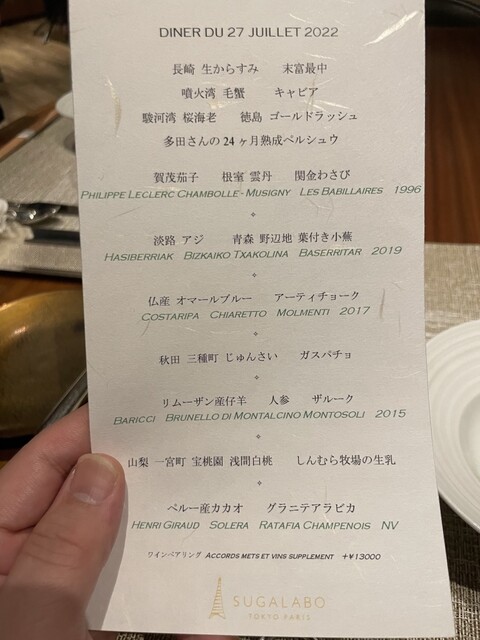 DINER DU 27 JUILLET 2022
長崎 生からすみ 末富最中
噴火湾 毛蟹 キャビア
駿河湾 桜海老 徳島 ゴールドラッシュ
多田さんの 24 ヶ月熟成ペルシュウ
賀茂茄子 根室 雲丹 関金わさび
PHILIPPE LECLERC CHAMBOLLE-MUSIGNY LES BABILLAIRES 1996
淡路 アジ 青森 野辺地 葉付き小蕪
HASIBERRIAK BIZKAIKO TXAKOLINA BASERRITAR 2019
仏産 オマールブルー アーティチョーク
COSTARIPA CHIARETTO MOLMENTI 2017
秋田 三種町 じゅんさい ガスパチョ
リムーザン産仔羊 人参 ザルーク
BARICCI BRUNELLO DI MONTALCINO MONTOSOLI 2015
山梨 一宮町 宝桃園 浅間白桃 しんむら牧場の生乳
ペルー産カカオ グラニテアラビカ
HENRI GIRAUD SOLERA RATAFIA CHAMPENOIS NV
ワインペアリング ACCORDS METS ET VINS SUPPLEMENT +¥13000
SUGALABO
TOKYO PARIS